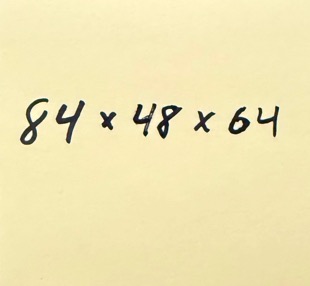 84 × 48 × 64